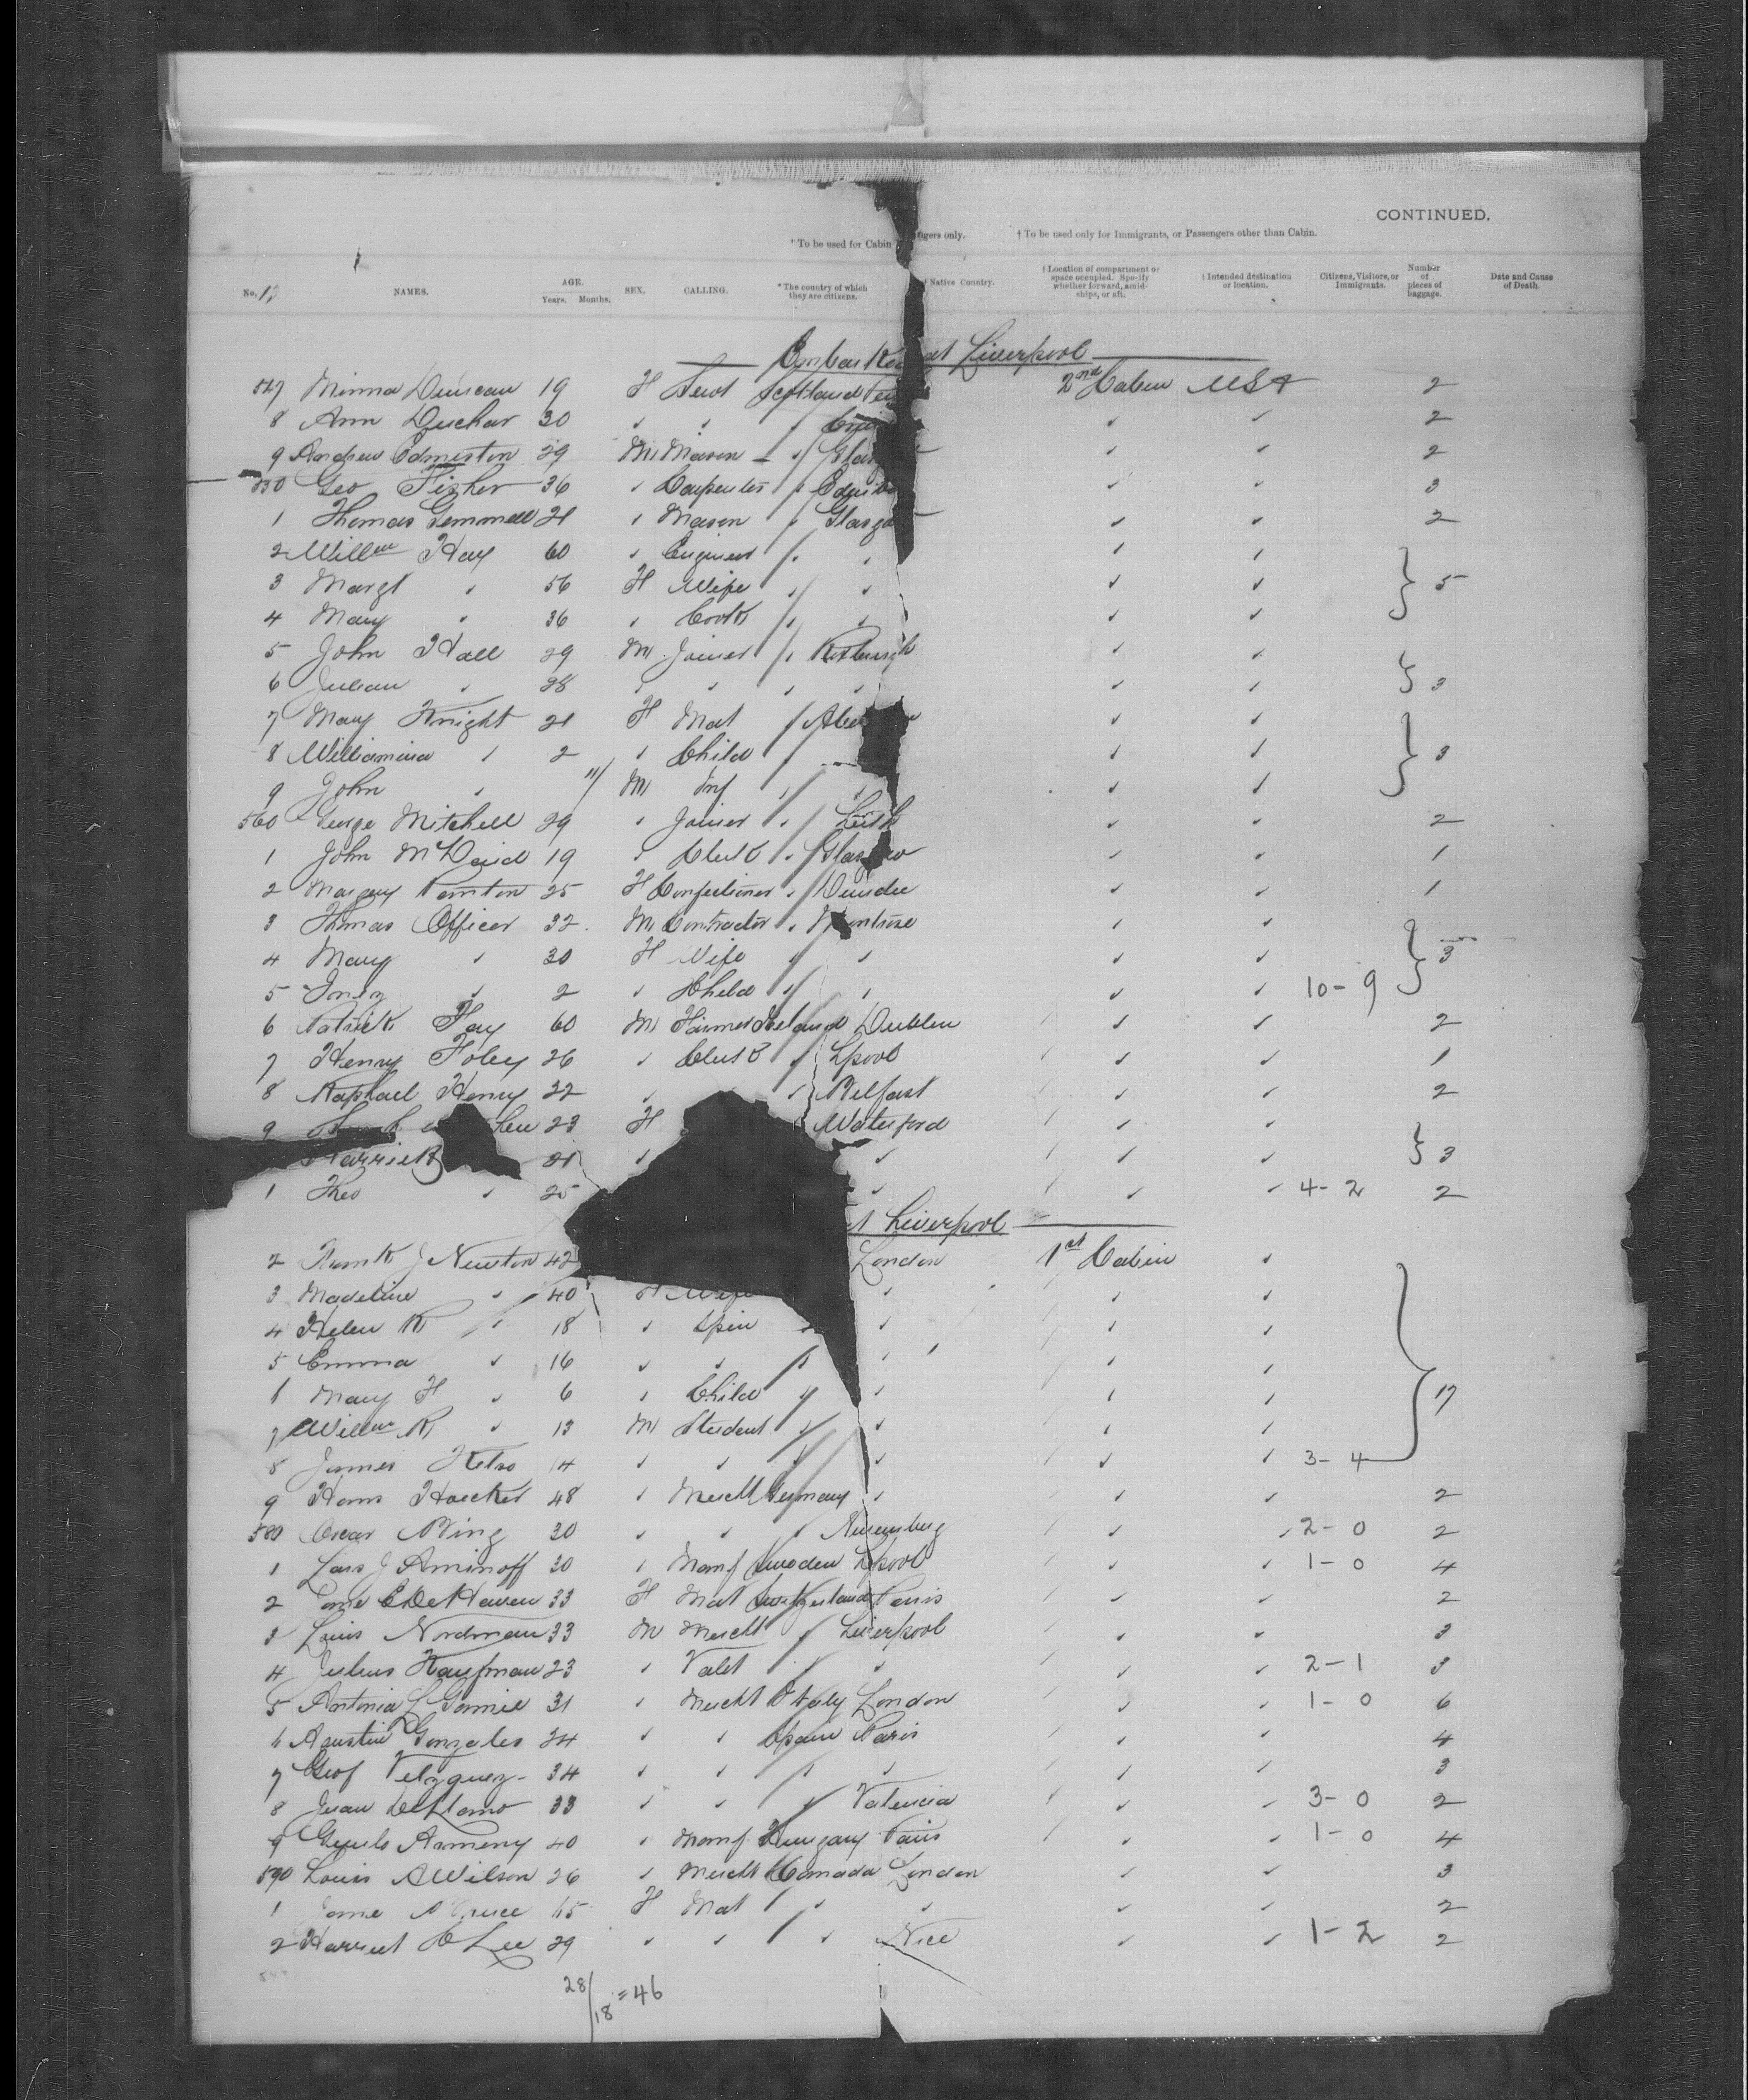 CONTINUED.
* To be used for Cabin ngers only. † To be used only for Immigrants, or Passengers other than Cabin.
No. NAMES. AGE. Years. Months. SEX. CALLING. * The country of which they are citizens. Native Country. † Location of compartment or space occupied. Specify whether forward, amidships, or aft. † Intended destination or location. Citizens, Visitors, or Immigrants. Number of pieces of baggage. Date and Cause of Death.
Embarked at Liverpool
547 Minna Duncan 19 F Servt Scotland 2nd Cabin USA 2
8 Ann Duchar 30 ✓ ✓ ✓ ✓ ✓ 2
9 Andrew Edmiston 29 M Mason ✓ Glas ✓ ✓ 2
550 Geo Fisher 36 ✓ Carpenter ✓ Edinb ✓ ✓ 3
1 Thomas Gemmell 21 ✓ Mason ✓ Glasgo ✓ ✓ 2
2 Willm Hay 60 ✓ Engineer ✓ ✓ ✓ ✓
3 Margt ✓ 56 F Wife ✓ ✓ ✓ ✓ } 5
4 Mary ✓ 36 ✓ Cook ✓ ✓ ✓ ✓
5 John Hall 29 M Joiner ✓ Roxburgh ✓ ✓
6 Julian ✓ 28 ✓ ✓ ✓ ✓ ✓ ✓ } 3
7 Mary Knight 21 F Mat ✓ Abe ✓ ✓
8 Williamina ✓ 2 ✓ Child ✓ ✓ ✓ } 3
9 John ✓ 11/ M Inf ✓ ✓ ✓ ✓
560 George Mitchell 29 ✓ Joiner ✓ Leith ✓ ✓ 2
1 John McDaid 19 ✓ Clerk ✓ Glasgow ✓ ✓ 1
2 Margary 25 F Confectioner ✓ Dundee ✓ ✓ 1
3 Thomas Officer 32 M Contractor ✓ Montrose ✓ ✓
4 Mary ✓ 30 F Wife ✓ ✓ ✓ ✓ } 3
5 Inez ✓ 2 ✓ Child ✓ ✓ ✓ ✓ 10-9
6 Patrick Fay 60 M Farmer Ireland Dublin ✓ ✓ 2
7 Henry Foley 26 ✓ Clerk ✓ Lpool ✓ ✓ 1
8 Raphael Henry 22 ✓ ✓ Belfast ✓ ✓ 2
9 23 F Waterford ✓ ✓
Harriet 21 ✓ ✓ ✓ ✓ } 3
1 Theo ✓ 25 ✓ ✓ ✓ 4-2 2
at Liverpool
2 Frank J Newton 42 London 1st Cabin ✓
3 Madeline ✓ 40 F Wife ✓ ✓ ✓
4 Helen R ✓ 18 ✓ Spin ✓ ✓ ✓
5 Emma ✓ 16 ✓ ✓ ✓ ✓ ✓ ✓
6 Mary F ✓ 6 ✓ Child ✓ ✓ ✓ ✓ } 17
7 Willm R ✓ 13 M Student ✓ ✓ ✓ ✓
8 James Kelso 14 ✓ ✓ ✓ ✓ ✓ ✓ 3-4
9 Hans Haecker 48 ✓ Mercht Germany ✓ ✓ ✓ 2
580 Oscar Bing 30 ✓ ✓ ✓ Nuremberg ✓ ✓ 2-0 2
1 Lars J Aminoff 30 ✓ Manf Sweden Lpool ✓ ✓ 1-0 4
2 DeHaven 33 F Mat Switzerland Paris ✓ ✓ 2
3 Louis Nordman 33 M Mercht ✓ Liverpool ✓ ✓ 3
4 Julius Kaufman 23 ✓ Valet ✓ ✓ ✓ ✓ 2-1 3
5 Antonia L 31 ✓ Mercht Italy London ✓ ✓ 1-0 6
6 Agustin Gonzales 24 ✓ ✓ Spain Paris ✓ ✓ 4
7 Velzquez 34 ✓ ✓ ✓ ✓ ✓ ✓ 3
8 Juan DelAlamo 33 ✓ ✓ ✓ Valencia ✓ ✓ 3-0 2
9 Armeny 40 ✓ Manf Hungary Paris ✓ ✓ 1-0 4
590 Louis A Wilson 26 ✓ Mercht Canada London ✓ ✓ 3
1 Jane 45 F Mat ✓ ✓ ✓ ✓ 2
2 Harriet Lee 29 ✓ ✓ ✓ Nice ✓ ✓ 1-2 2
28/18 = 46